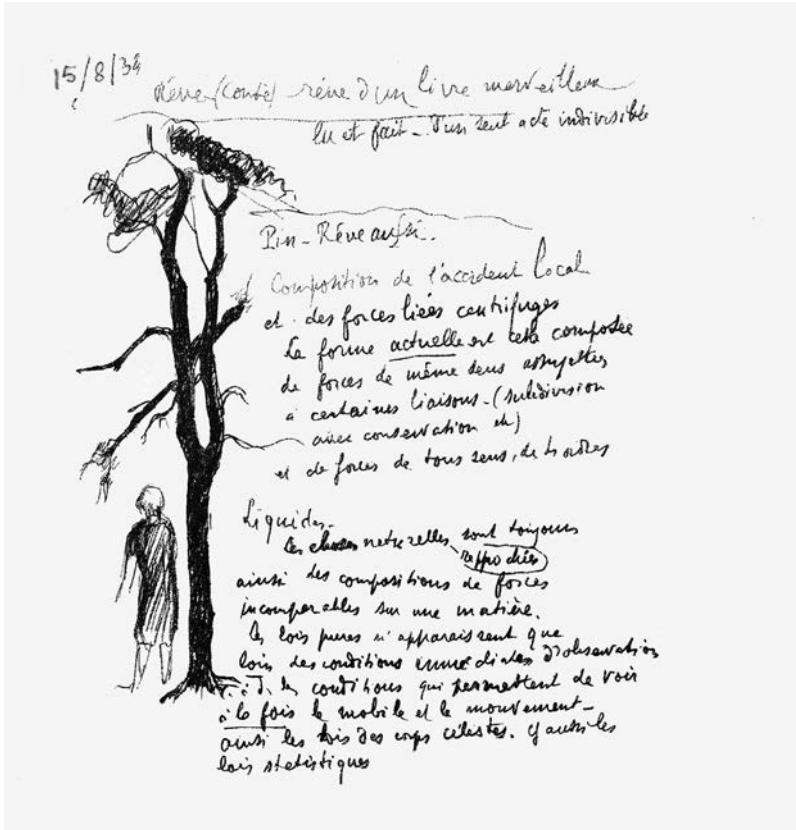 15/8/34
Rêve (conte) rêve d'un livre merveilleux
lu et fait - d'un seul acte indivisible
Pin - Rêve aussi.
Composition de l'accident local
et des forces liées centrifuges
La forme actuelle est cela composée
de forces de même sens assujetties
à certaines liaisons - (subdivision
avec conservation etc)
et de forces de tous sens, de ts ordres
Liquides -
Les choses naturelles sont toujours
rapprochées
ainsi des compositions de forces
incomparables sur une matière.
Les lois pures n'apparaissent que
loin des conditions immédiates d'observation
c.à.d. les conditions qui permettent de voir
à la fois le mobile et le mouvement -
ainsi les lois des corps célestes. Et aussi les
lois statistiques